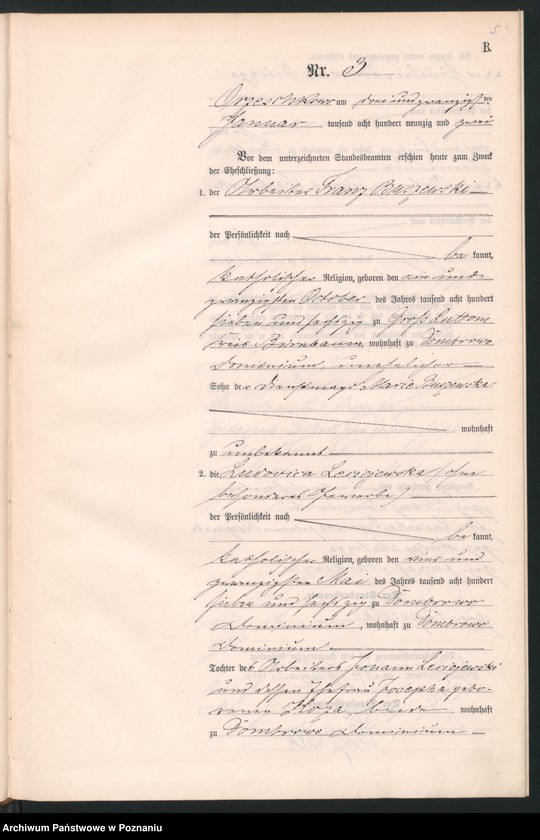 5
B.
Nr. 3
Orzeschkowo am drei und zwanzigsten
Januar tausend acht hundert neunzig und zwei
Vor dem unterzeichneten Standesbeamten erschien heute zum Zweck
der Eheschließung:
1. der Arbeiter Franz Buszewski
der Persönlichkeit nach
be kannt,
katholischer Religion, geboren den ein und
zwanzigsten October des Jahres tausend acht hundert
sieben und sechszig zu Groß Luttom
Kreis Birnbaum, wohnhaft zu Dombrowo
Dominium, unehelicher
Sohn der Dienstmagd Marie Buszewska
wohnhaft
zu unbekannt
2. die Ludovica Lesiejewska (ohne
besonderes Gewerbe)
der Persönlichkeit nach
be kannt,
katholischer Religion, geboren den vier und
zwanzigsten Mai des Jahres tausend acht hundert
sieben und sechszig zu Dombrowo
Dominium, wohnhaft zu Dombrowo
Dominium
Tochter des Arbeiters Johann Lesiejewski
und dessen Ehefrau Josepha gebo-
renen beide wohnhaft
zu Dombrowo Dominium
Archiwum Państwowe w Poznaniu